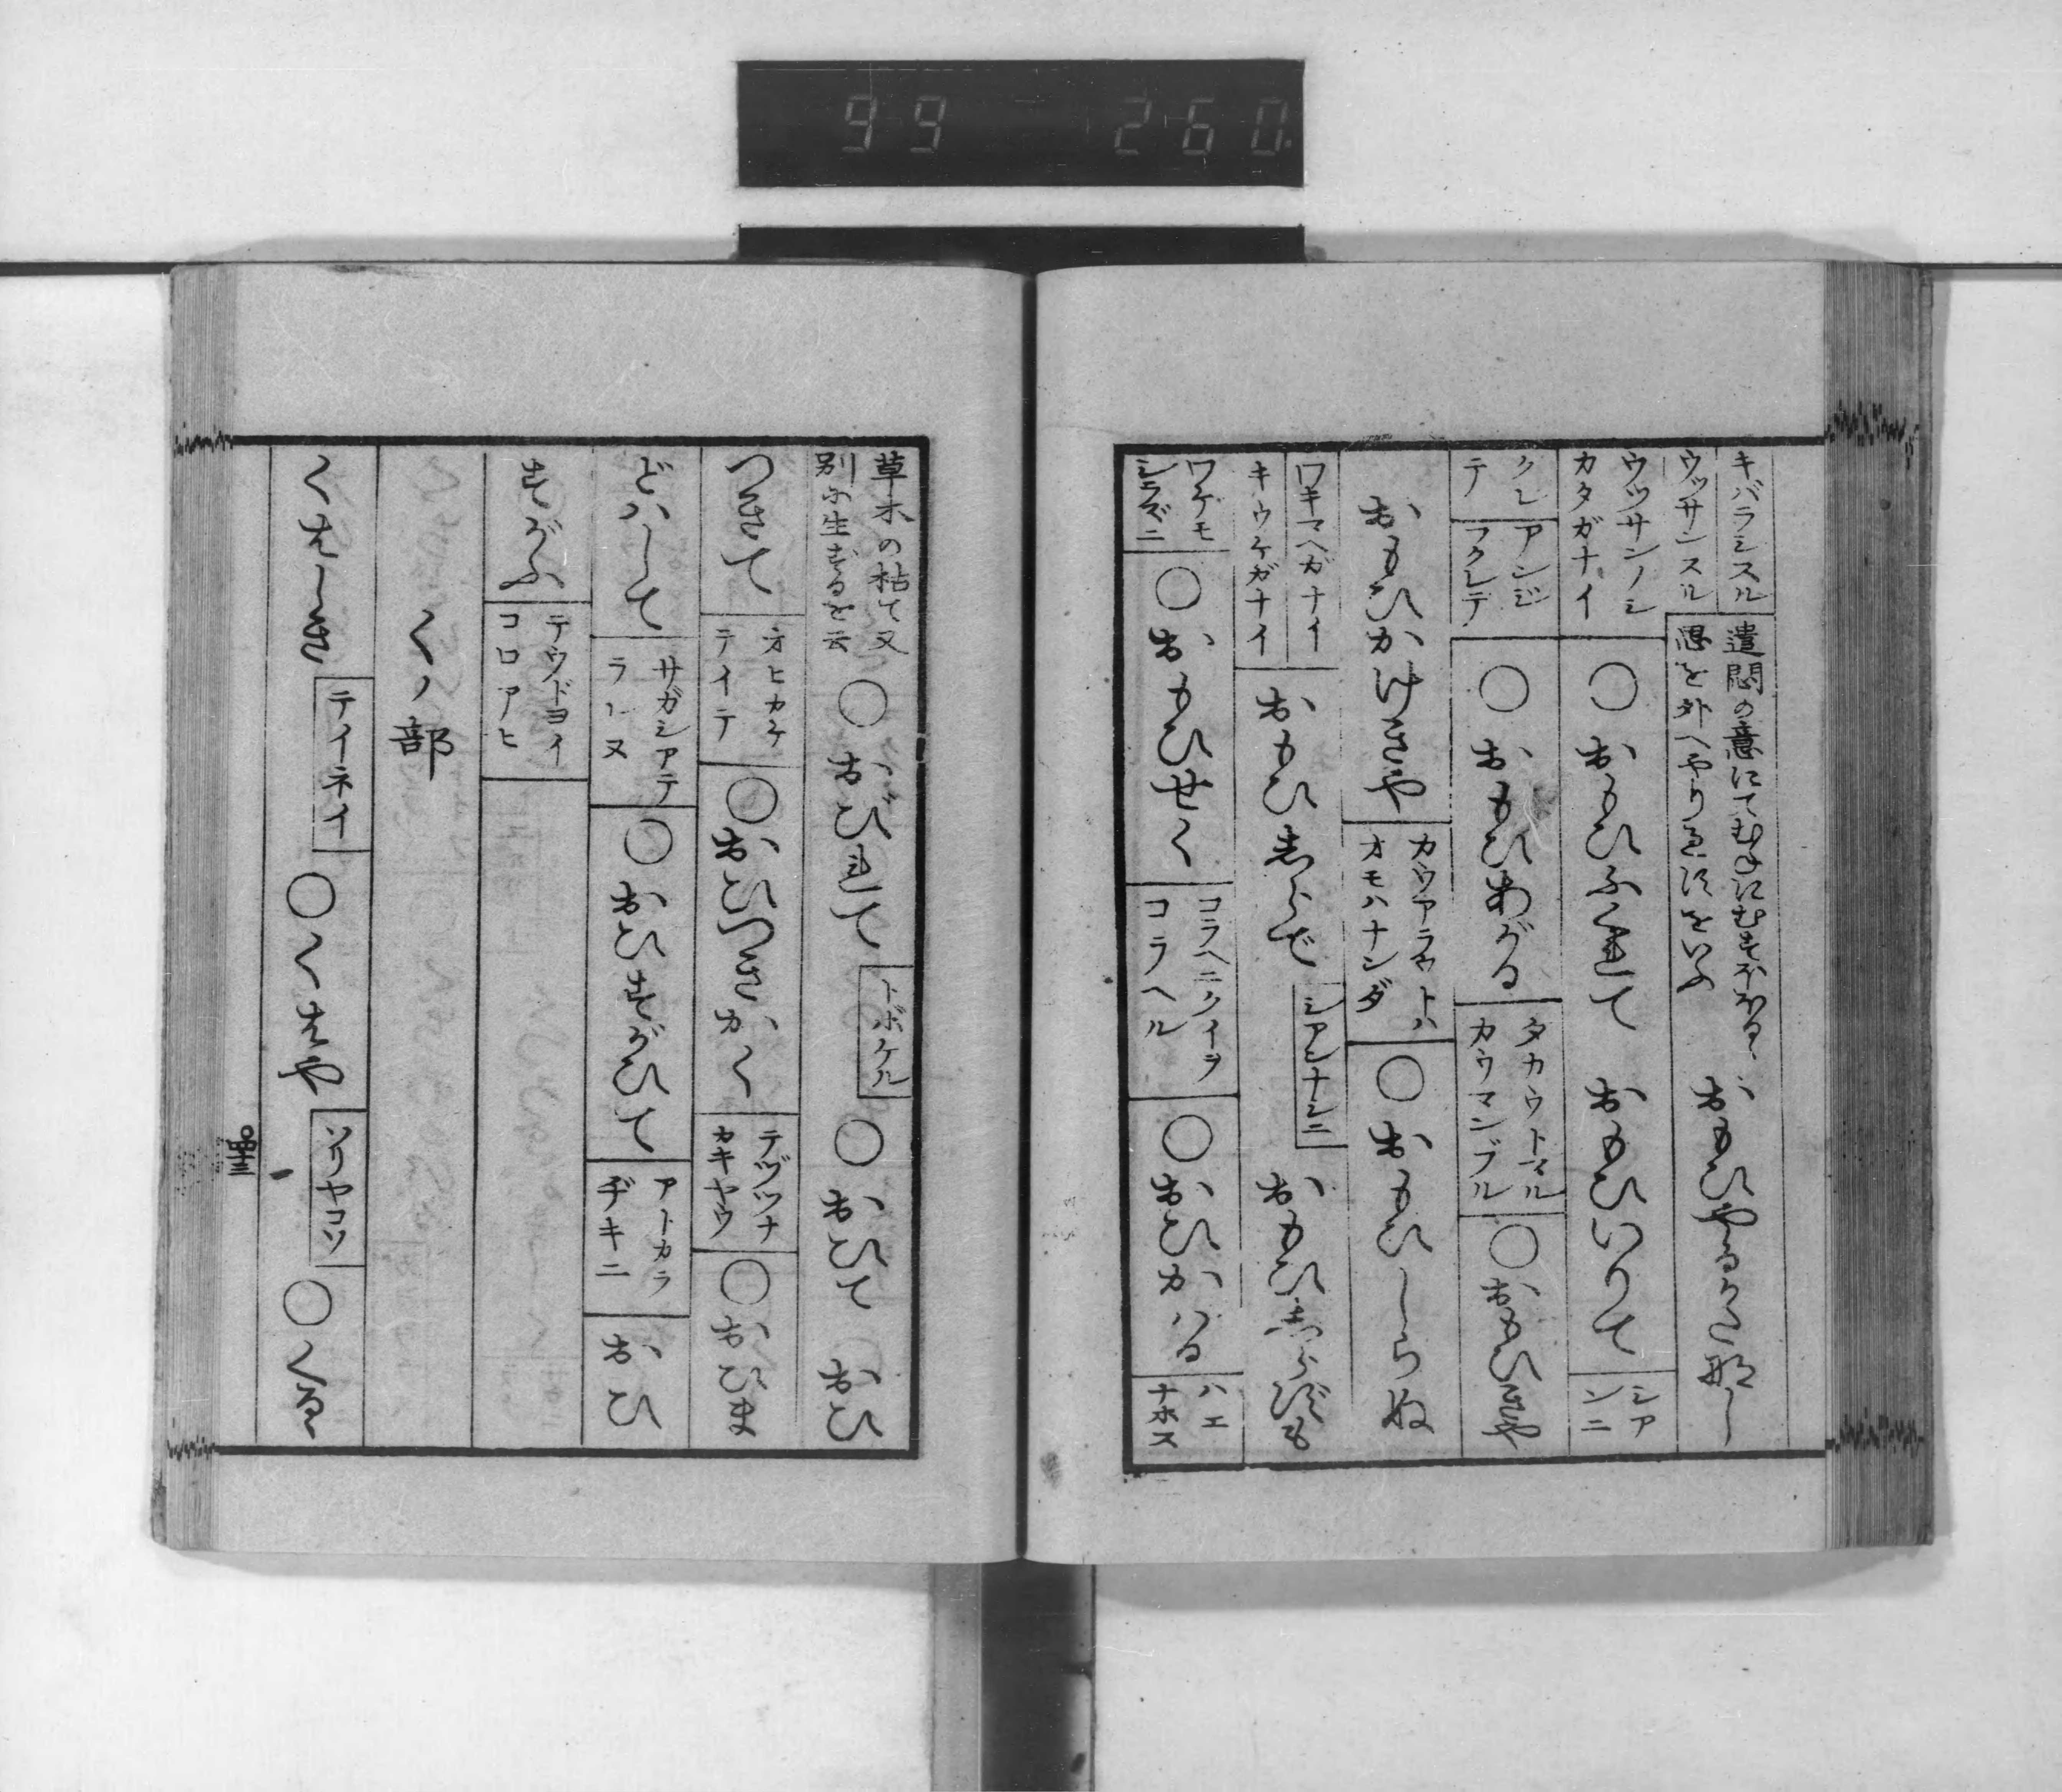 99 260.
キバラシスル
ウツサンスル
遣悶の意にてむねにむすぼゝる
思を外へやりてはるけをいふ
おもひやるかた那し
ウツサンノシ
カタガナイ
○おもひふくれて
おもひいりて
シア
ンニ
クレ
テ
アンジ
フクレテ
○おもひあがる
タカウトマル
カウマンブル
○おもひきや
おもひかけきや
カウアラウトハ
オモハナンダ
○おもひしらぬ
ワキマヘガナイ
キウケガナイ
おもひ志らで
シアンナシニ
おもひ志らずも
ワケモ
シラズニ
○おもひせく
コラヘニクイヲ
コラヘル
○おひかハる
ハエ
ナホス
草木の枯て又
別に生ずるを云
○おびれて
トボケル
○おひて
おひ
つきて
オヒカケ
テイテ
○おひつきかく
テヅツナ
カキヤウ
○おひま
どハして
サガシアテ
ラレヌ
○おひすがひて
アトカラ
ヂキニ
おひ
すがふ
テウドヨイ
コロアヒ
くノ部
くはしき
テイネイ
○くはや
ソリヤコソ
○くる
四十三